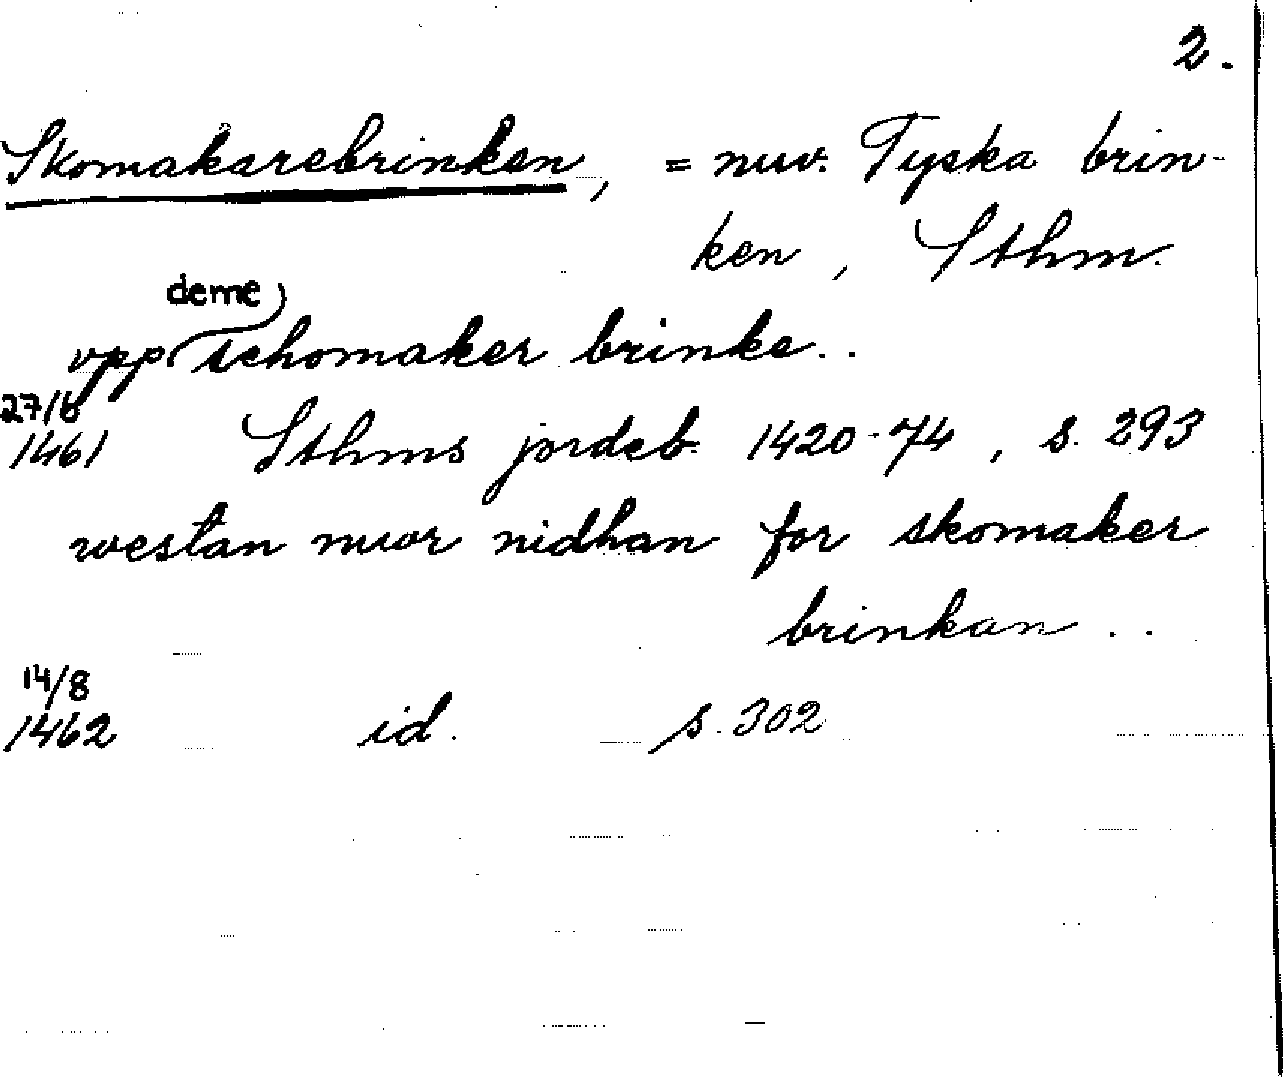 2.
Skomakarebrinken, = nuv. Tyska brin-
ken, Sthm.
deme
vpp schomaker brinke..
27/6
1461 Sthms jordeb. 1420-74, s. 293
westan mwr nidhan for skomaker
brinkan ..
14/8
1462 id. s. 302